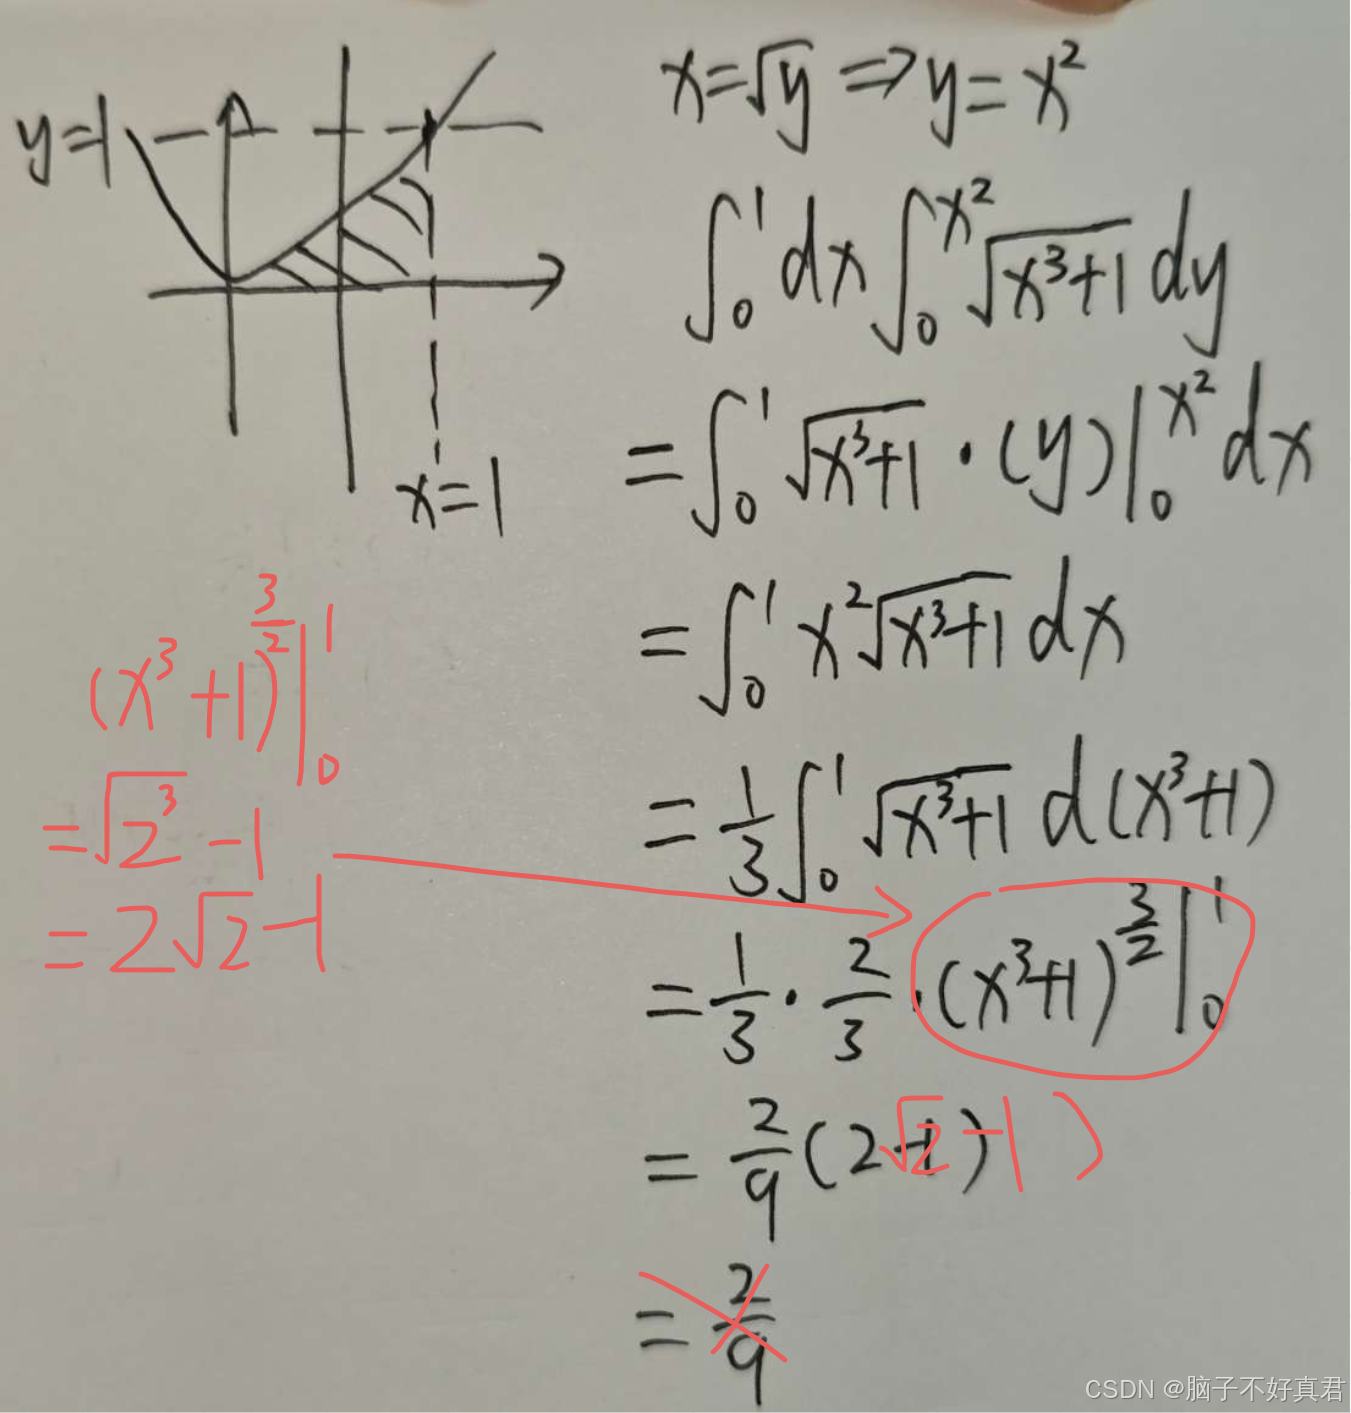 x=√y ⇒ y=x²
y=1
∫₀¹dx∫₀^{x²}√(x³+1) dy
=∫₀¹√(x³+1)·(y)|₀^{x²}dx
x=1
=∫₀¹x²√(x³+1) dx
=1/3∫₀¹√(x³+1) d(x³+1)
=1/3·2/3·(x³+1)^{3/2}|₀¹
=2/9(2-1)
√2-1)
=2/9
(x³+1)^{3/2}|₀¹
=√(2³)-1
=2√2-1
CSDN @脑子不好真君